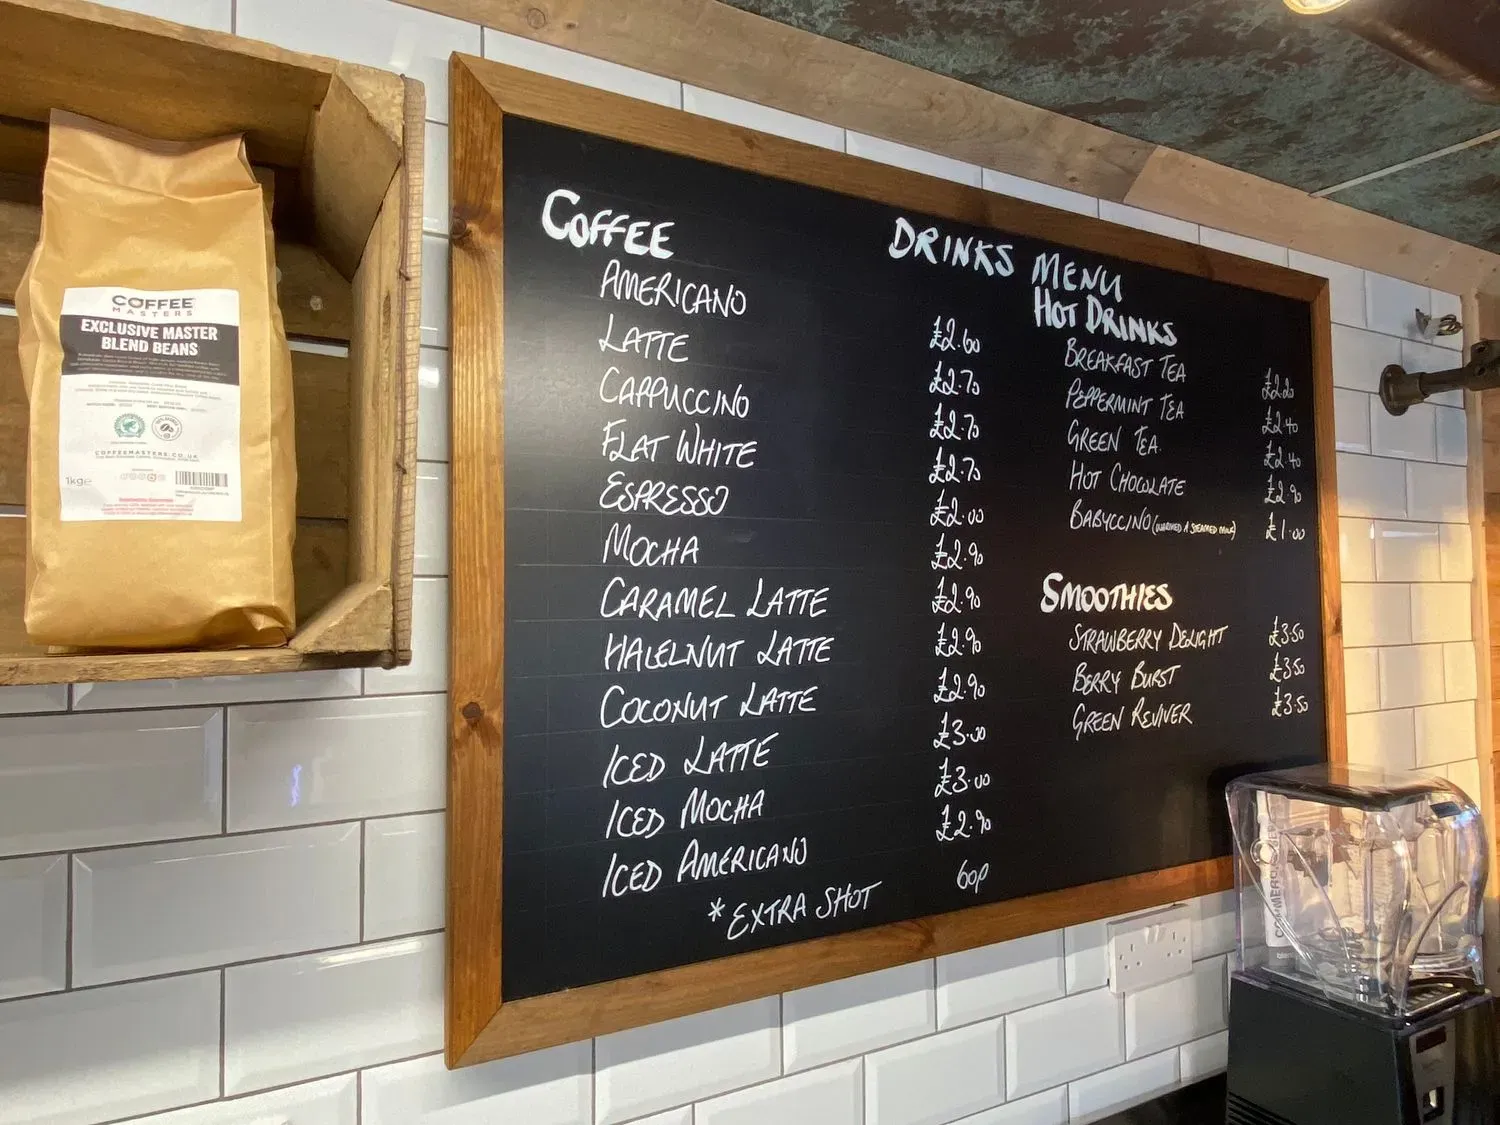 COFFEE
MASTERS
EXCLUSIVE MASTER
BLEND BEANS
COFFEEMASTERS.CO.UK
1kg℮
DRINKS MENU
COFFEE
AMERICANO £2.60
LATTE £2.70
CAPPUCCINO £2.70
FLAT WHITE £2.70
ESPRESSO £2.00
MOCHA £2.90
CARAMEL LATTE £2.90
HALELNUT LATTE £2.90
COCONUT LATTE £2.90
ICED LATTE £3.00
ICED MOCHA £3.00
ICED AMERICANO £2.90
*EXTRA SHOT 60p
HOT DRINKS
BREAKFAST TEA £2.20
PEPPERMINT TEA £2.40
GREEN TEA. £2.40
HOT CHOCOLATE £2.90
BABYCCINO (WARMED & STEAMED MILK) £1.00
SMOOTHIES
STRAWBERRY DELIGHT £3.50
BERRY BURST £3.50
GREEN REVIVER £3.50